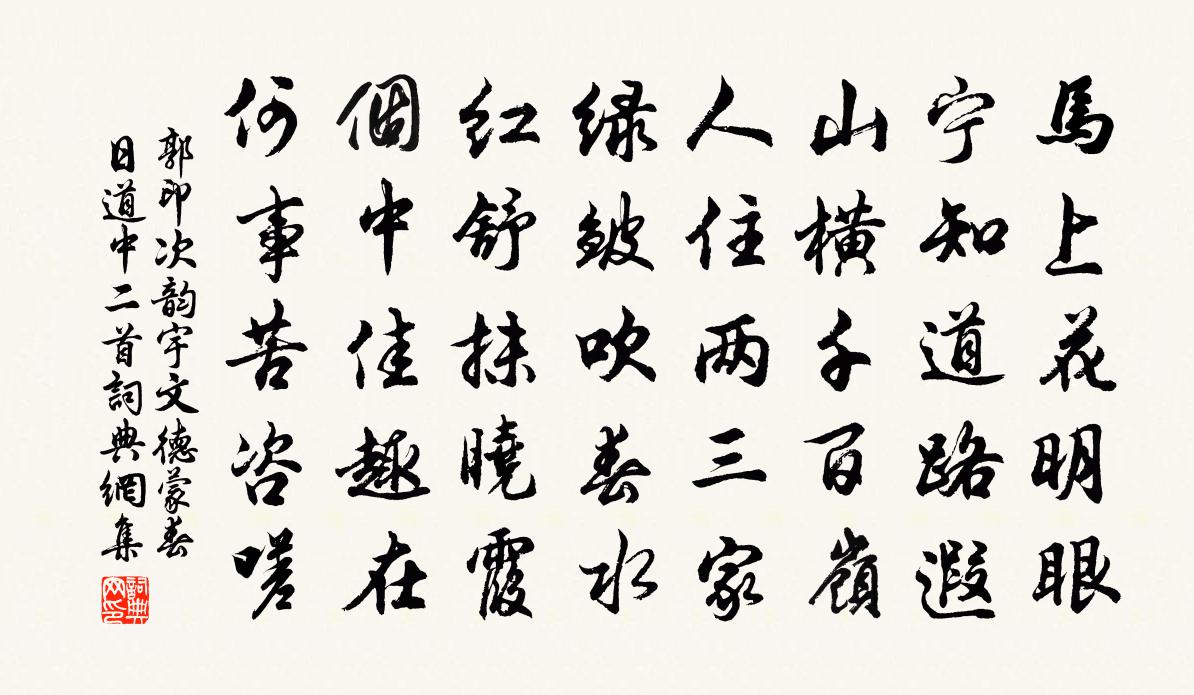 馬上花明眼
宁知道路遐
山橫千百嶺
人住两三家
緑皴吹春水
紅舒抹曉霞
個中佳趣在
何事苦咨嗟
郭印次韵宇文德蒙春
日道中二首詞典網集
詞典网印